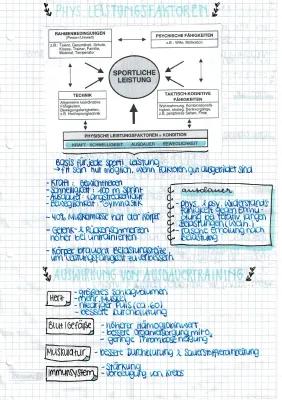 PHYS. LEISTUNGSFAKTOREN
RAHMENBEDINGUNGEN
(Person/Umwelt)
z.B.: Talent, Gesundheit, Schule,
Klasse, Trainer, Familie,
Material, Temperatur
PSYCHISCHE FÄHIGKEITEN
z.B.: Wille, Motivation
SPORTLICHE
LEISTUNG
TECHNIK
Allgemeine koordinative
Fähigkeiten,
Bewegungsfertigkeiten,
z.B.: Hochsprungtechnik
TAKTISCH-KOGNITIVE
FÄHIGKEITEN
z.B.: peripheres Sehen, Finte
PHYSISCHE LEISTUNGSFAKTOREN = KONDITION
KRAFT SCHNELLIGKEIT AUSDAUER BEWEGLICHKEIT
Basis für jede sportl. Leistung
→ fit sein nur möglich, wenn Faktoren gut ausgebildet sind
- Kraft: Gewichtheben
- Schnelligkeit: 100 m Sprint
- Ausdauer: Langstreckenlauf
- Beweglichkeit: Gymnastik
- 40% Muskelmasse hat der Körper
- Gelenk- & Rückenschmerzen
höher bei untrainierten
- Körper braucht Belastungsreize
um Leistungsfähigkeit zu verbessern
ausdauer
phys. & psy. Widerstands-
fähigkeit gegen Ermü-
dung bei relativ langen
Belastungen &
rasche Erholung nach
Belastung
AUSWIRKUNG VON AUSDAUERTRAINING
Herz
- größeres Schlagvolumen
- mehr Muskel
- niedriger Puls (ca. 60)
- bessere Durchblutung
Blutgefäße
- höherer Hämoglobinwert
- bessere Organversorgung mit O₂
- geringe Thromboseneigung
Muskulatur
- bessere Durchblutung & Sauerstoffverarbeitung
Immunsystem
- Stärkung
- Vorbeugung von Krebs